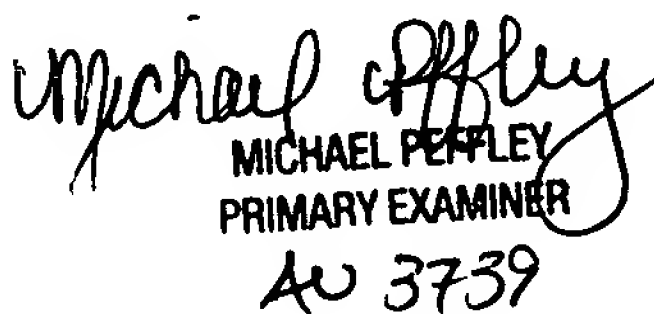 Michael Peffley
MICHAEL PEFFLEY
PRIMARY EXAMINER
AU 3739